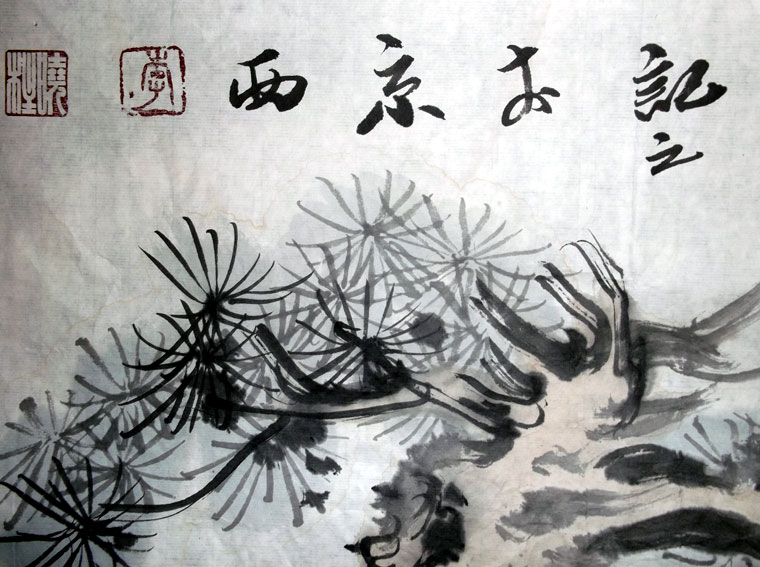 記之
於
京
西
李